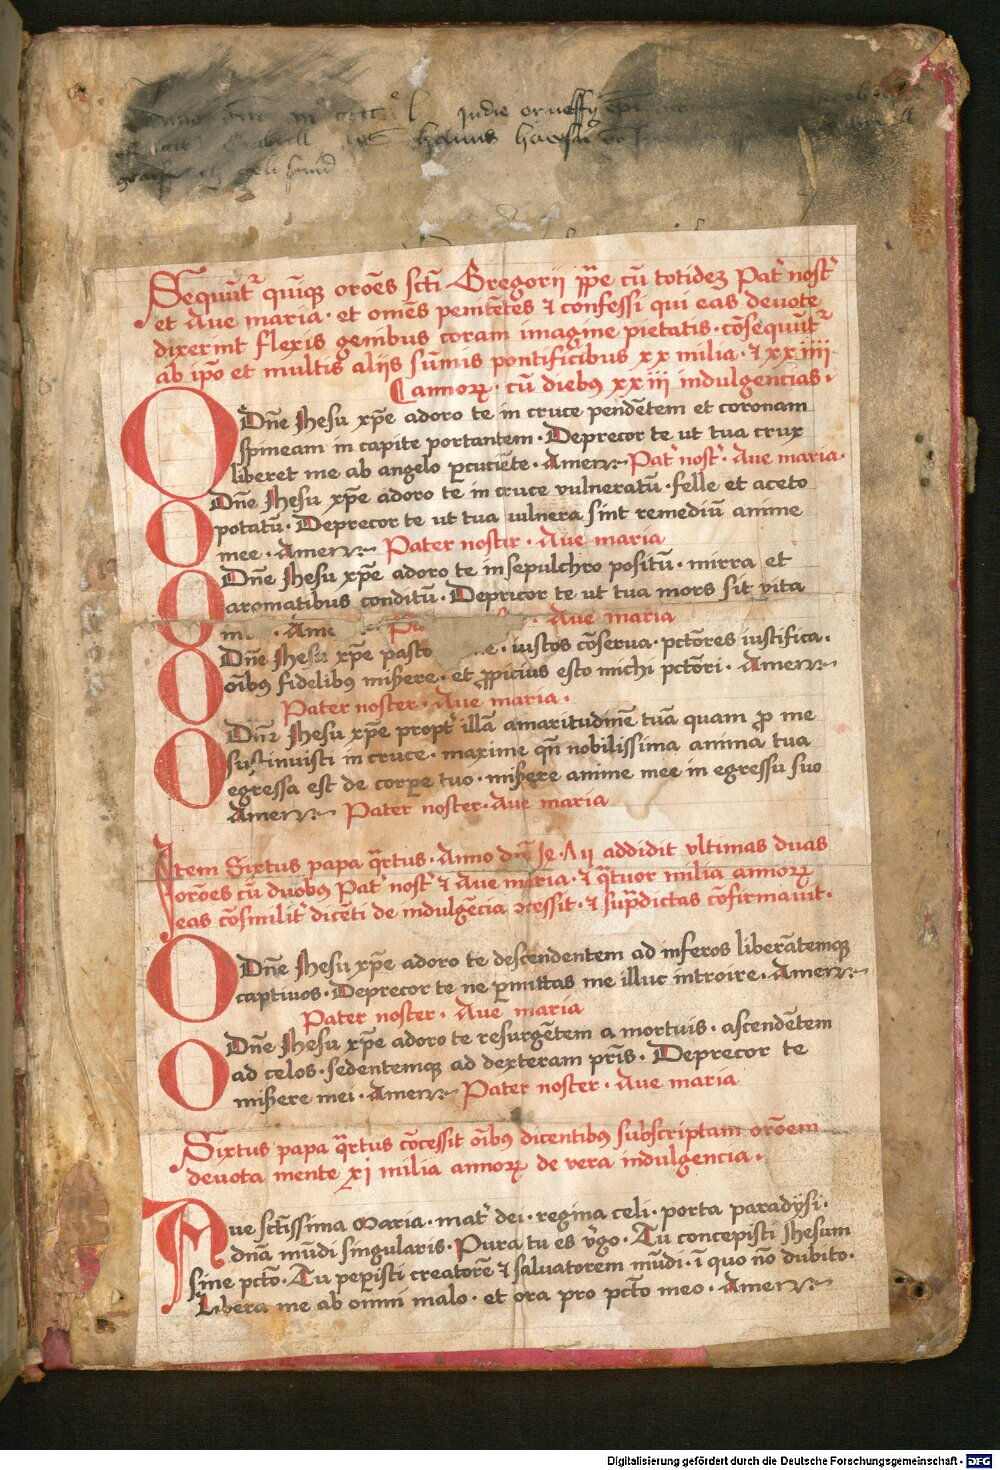 Iudie
hanns
Sequūt᷑ quīq₃ orōes sctī Gregorii pp̄e cū totidez Pat᷑ nost᷑
et Aue maria · et omēs penitētes ⁊ confessi qui eas deuote
dixerint flexis genibus coram imagine pietatis · cōsequūt᷑
ab ip̄o et multis aliis sūmis pontificibus xx milia · ⁊ xxiiii
annoꝝ · cū diebꝫ xxiii indulgencias ·
O Dn̄e Jhesu xp̄e adoro te in cruce pendētem et coronam
spineam in capite portantem · Deprecor te ut tua crux
liberet me ab angelo ꝑcuciēte · Amen Pat᷑ nost᷑ · Aue maria ·
O Dn̄e Jhesu xp̄e adoro te in cruce vulneratū · felle et aceto
potatū · Deprecor te ut tua vulnera sint remediū anime
mee · Amen Pater noster · Aue maria
O Dn̄e Jhesu xp̄e adoro te in sepulchro positū · mirra et
aromatibus conditū · Depricor te ut tua mors sit vita
m · Ame P · Aue maria
O Dn̄e Jhesu xp̄e pasto e · iustos cōserua · pctōres iustifica ·
oībꝫ fidelibꝫ mis̄ere · et ꝓpicius esto michi pctōri · Amen
Pater noster · Aue maria ·
O Dn̄e Jhesu xp̄e propt᷑ illā amaritudinē tuā quam ꝓ me
sustinuisti in cruce · maxime qn̄ nobilissima anima tua
egressa est de corꝑe tuo · mis̄ere anime mee in egressu suo
Amen Pater noster · Aue maria
Item Sixtus papa q̄rtus · Anno addidit vltimas duas
orōes cū duobꝫ Pat᷑ nost᷑ ⁊ Aue maria · ⁊ q̄tuor milia annoꝝ
eas cōsimilit᷑ dicēti de indulgēcia ↄcessit · ⁊ sup̄dictas cōfirmauit ·
O Dn̄e Jhesu xp̄e adoro te descendentem ad inferos liberātemqꝫ
captiuos · Deprecor te ne ꝑmittas me illuc introire · Amen
Pater noster · Aue maria
O Dn̄e Jhesu xp̄e adoro te resurgētem a mortuis · ascendētem
ad celos · sedentemqꝫ ad dexteram pr̄is · Deprecor te
mis̄ere mei · Amen Pater noster · Aue maria
Sixtus papa q̄rtus cōcessit oībꝫ dicentibꝫ subscriptam orōem
deuota mente xi milia annoꝝ de vera indulgencia ·
Aue sctīssima Maria · mat᷑ dei · regina celi · porta paradysi ·
dn̄a mūdi singularis · Pura tu es v̄go · Tu concepisti Jhesum
sine pctō · Tu peperisti creatorē ⁊ saluatorem mūdi · ī quo nō dubito ·
Libera me ab omni malo · et ora pro pctō meo · Amen
Digitalisierung gefördert durch die Deutsche Forschungsgemeinschaft - DFG